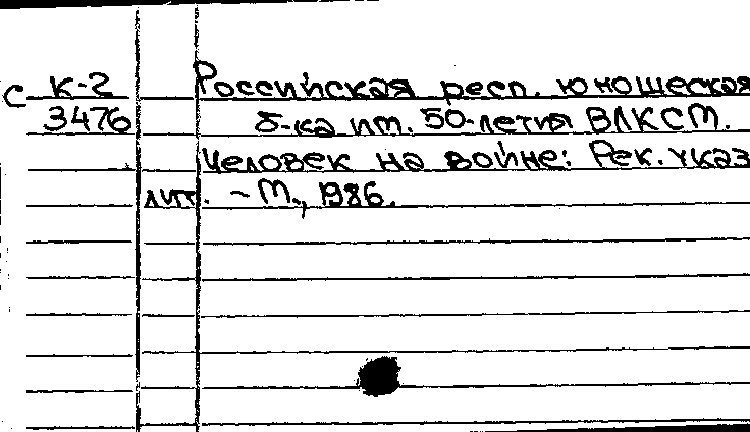 С К-2 Российская респ. юношеская
3476 б-ка им. 50-летия ВЛКСМ.
Человек на войне: Рек. указ
лит. - М., 1986.